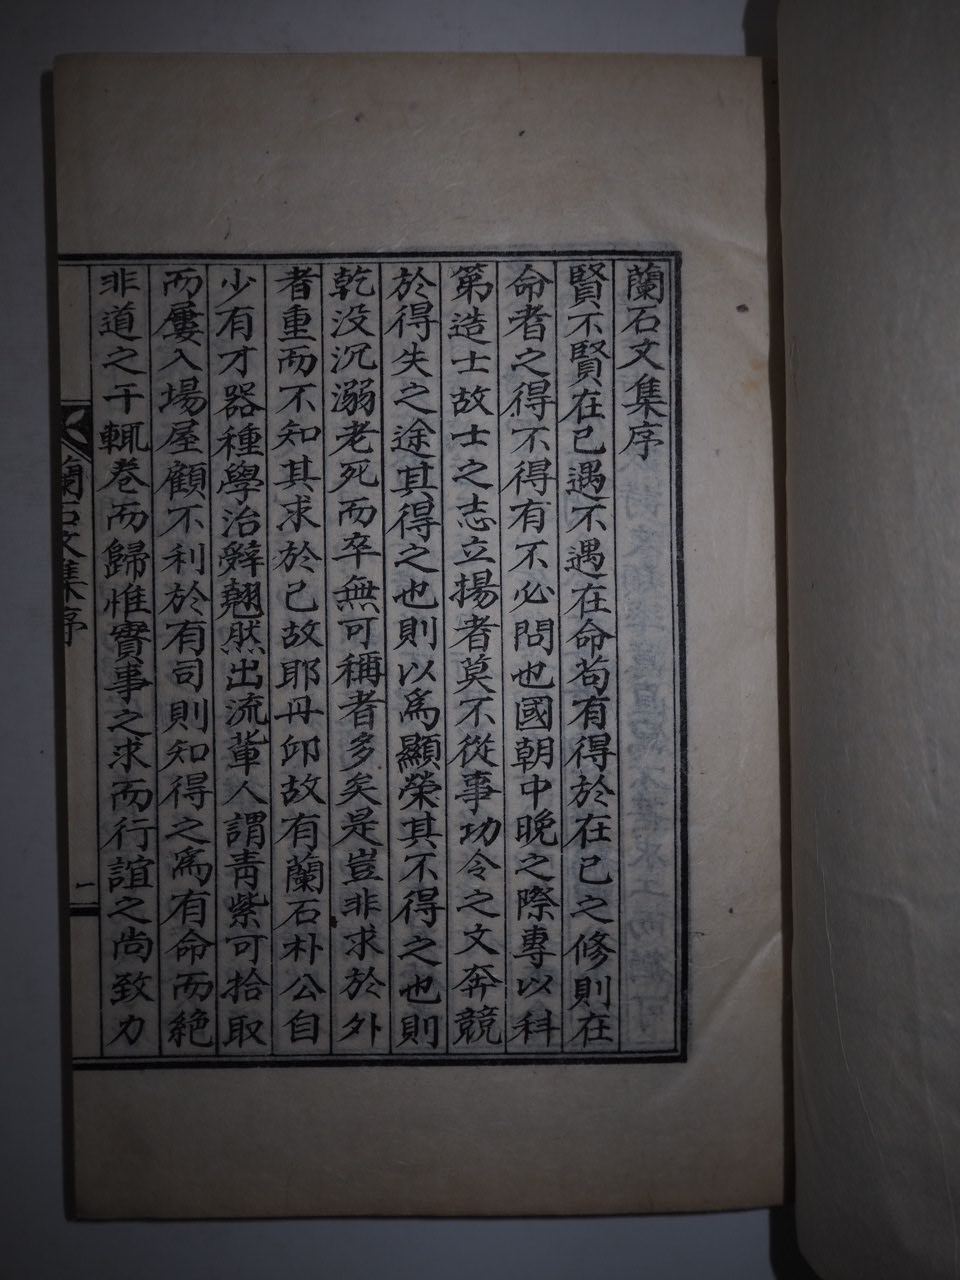 蘭石文集序
賢不賢在已遇不遇在命苟有得於在已之修則在
命者之得不得有不必問也國朝中晚之際專以科
第造士故士之志立揚者莫不從事功令之文奔競
於得失之途其得之也則以爲顯榮其不得之也則
乾没沉溺老死而卒無可稱者多矣是豈非求於外
者重而不知其求於己故耶丹邱故有蘭石朴公自
少有才器種學治辭翹然出流輩人謂靑紫可拾取
而屢入場屋顧不利於有司則知得之爲有命而絕
非道之干輒卷而歸惟實事之求而行誼之尚致力
蘭石文集序
一